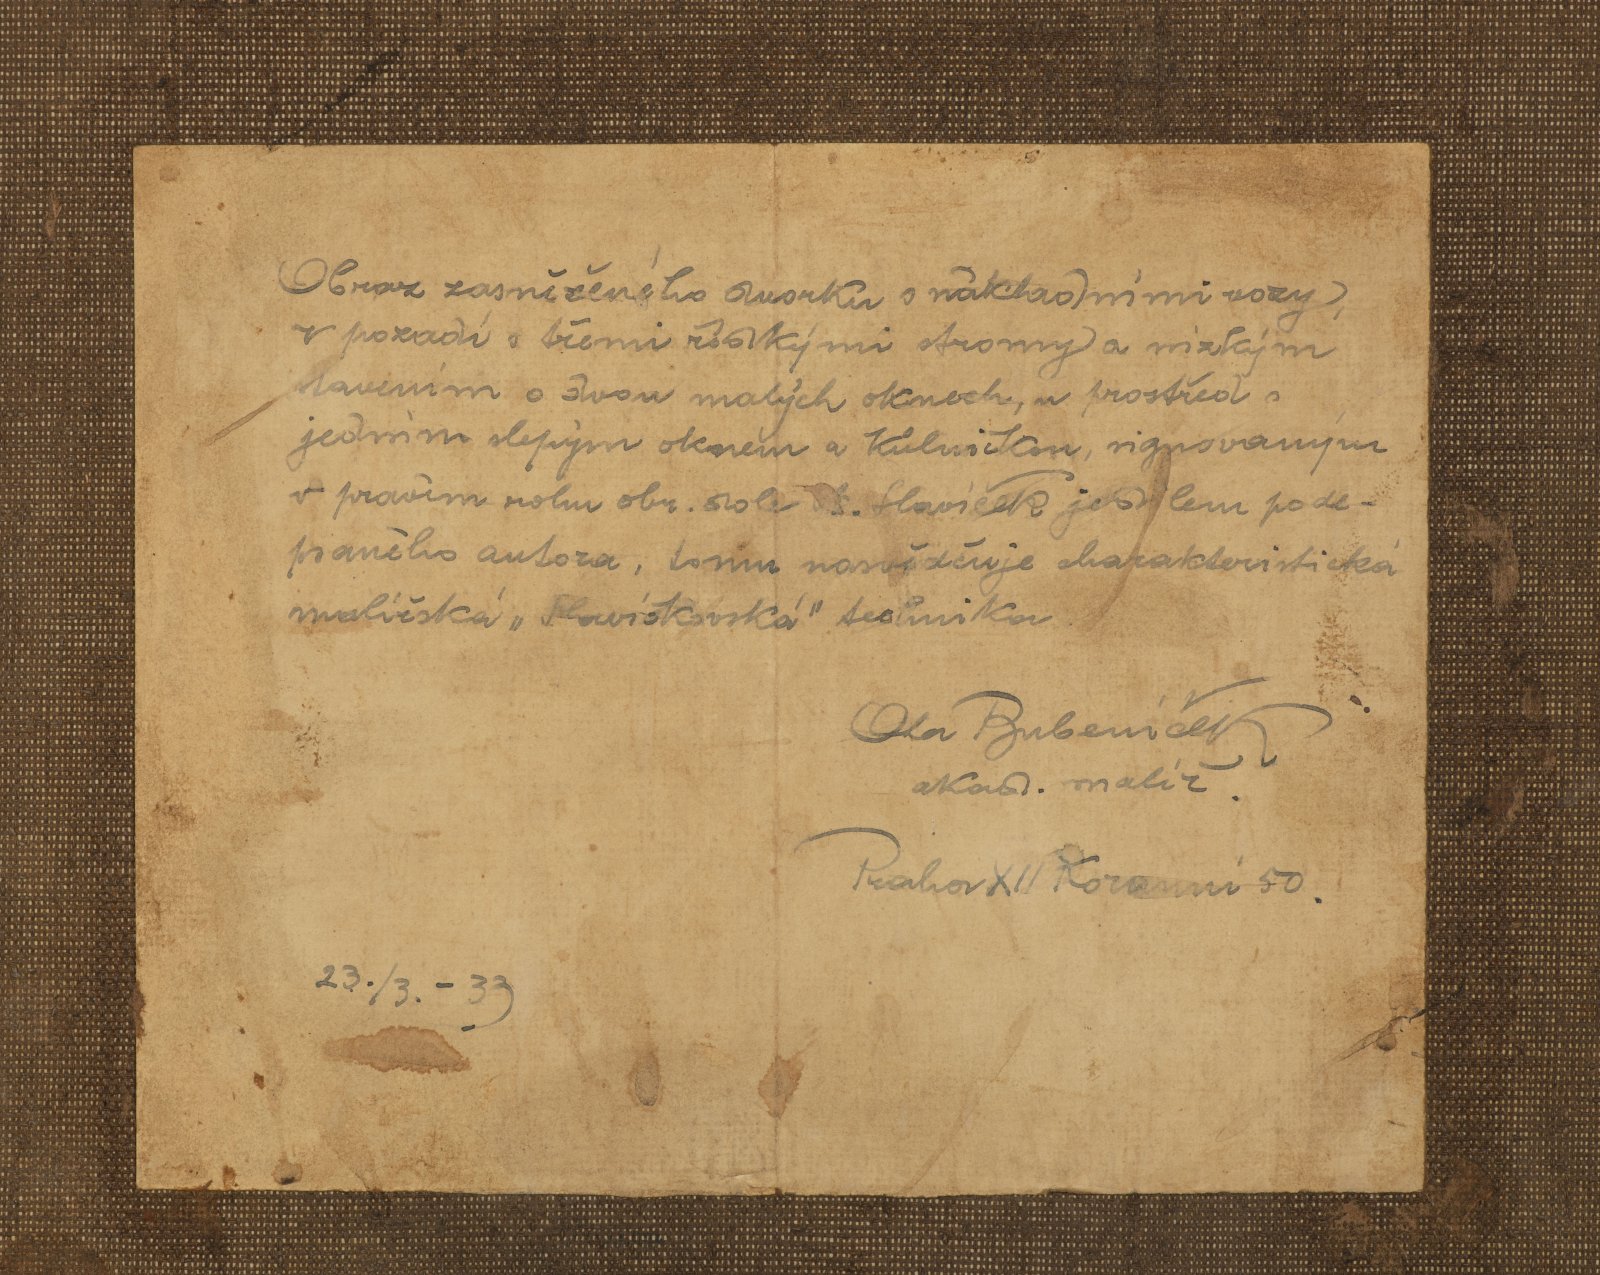 Obraz zasněženého dvorku s nákladními vozy,
v pozadí s třemi řídkými stromy a nízkým
stavením o dvou malých oknech, u prostřed s
jedním slepým oknem a kůlničkou, signovaným
v pravém rohu obr. dole A. Slavíček jest dílem pode-
psaného autora, tomu nasvědčuje charakteristická
malířská „Slavíčkovská" technika
Ota Bubeníček
akad. malíř.
Praha XII Korunní 50.
23./3. - 33